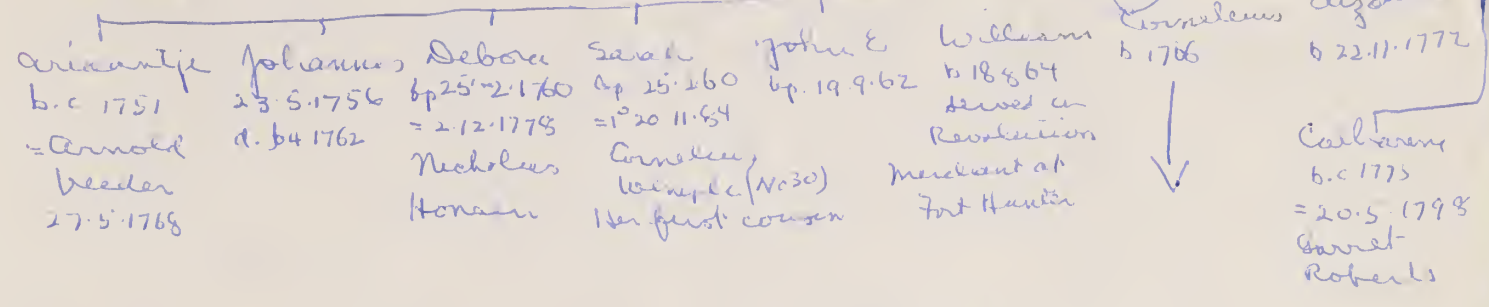 Ariaantje
b.c 1751
= Arnold
Veeder
27.5.1768
Johannes
23.5.1756
d. b4 1762
Debora
bp 25-2.1760
= 2.12.1778
Nicholas
Sarah
bp 25.2.60
=1° 20 11.84
Cornelius
Wemple (No 30)
Her first cousin
John E
bp. 19.9.62
William
b 18 8 64
served in
Revolution
Merchant at
Fort Hunter
Cornelius
b 1766
b 22.11.1772
Catharine
b.c 1775
= 20.5.1798
Garret
Roberts